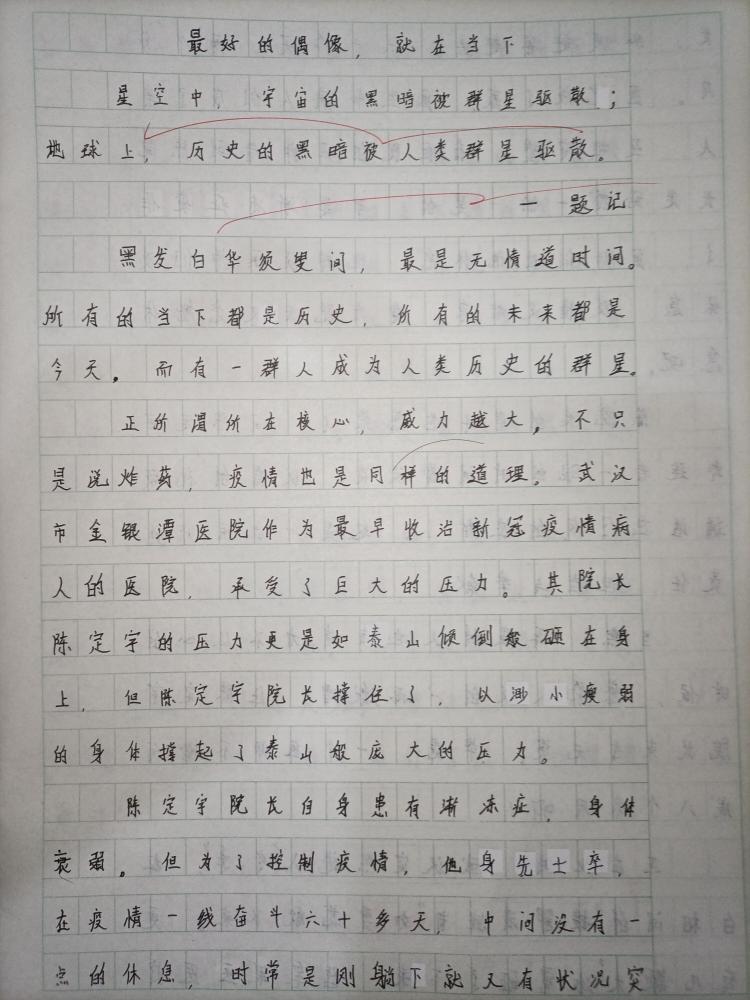 最好的偶像，就在当下
星空中，宇宙的黑暗被群星驱散；
地球上，历史的黑暗被人类群星驱散。
一题记
黑发白华须臾间，最是无情道时间。
所有的当下都是历史，所有的未来都是
今天。而有一群人成为人类历史的群星。
正所谓所在核心，威力越大。不只
是说炸药，疫情也是同样的道理。武汉
市金银潭医院作为最早收治新冠疫情病
人的医院，承受了巨大的压力。其院长
陈定宇的压力更是如泰山倾倒般砸在身
上，但陈定宇院长撑住了，以渺小瘦弱
的身体撑起了泰山般庞大的压力。
陈定宇院长自身患有渐冻症，身体
衰弱。但为了控制疫情，他身先士卒，
在疫情一线奋斗六十多天，中间没有一
点的休息，时常是刚躺下就又有状况突